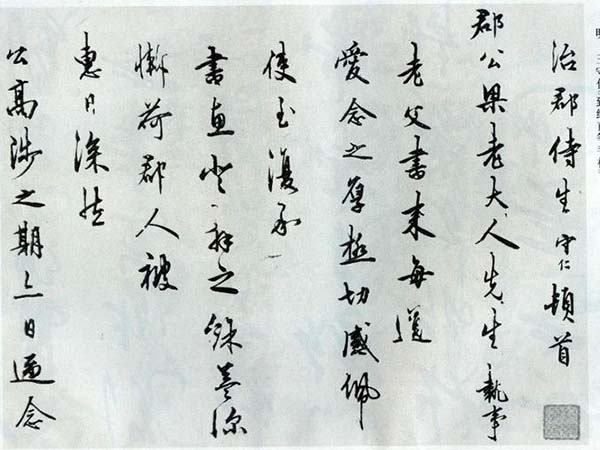 治郡侍生守仁頓首
郡公果老大人先生執事
老父書来每道
愛念之厚極切感佩
使至復承
書惠登拜之餘益深
慚荷郡人被
惠日深然
公高陟之期亦日逼念